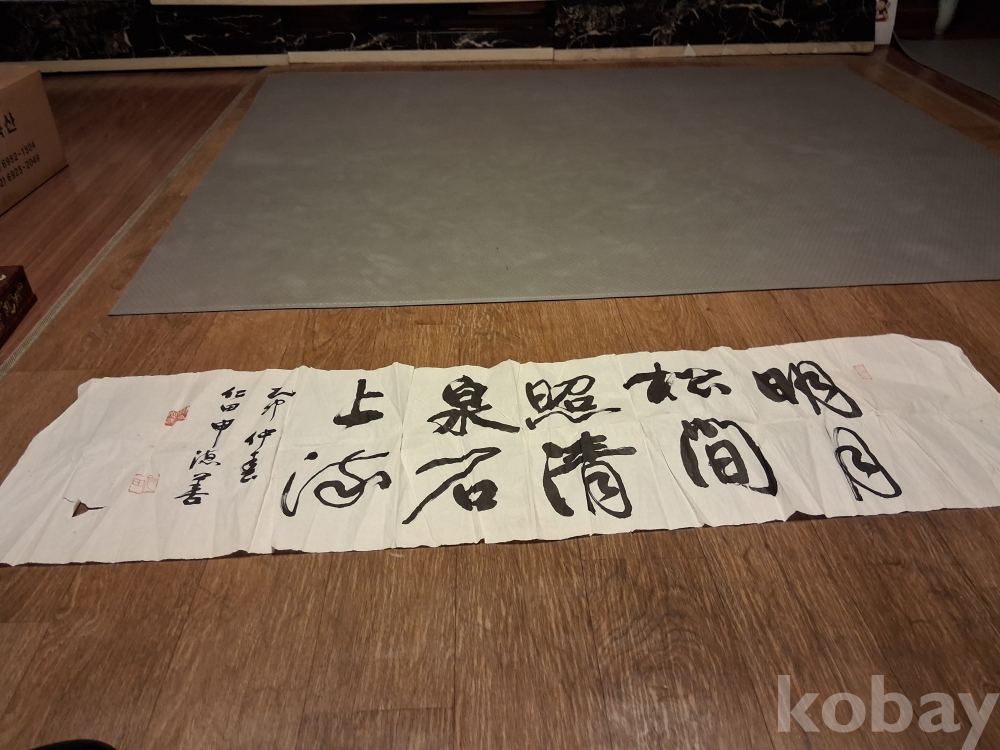 明月
松間
照清
泉石
上流
乙卯仲春
仁田申德善
산
6952-1504
2) 6925-2049
kobay